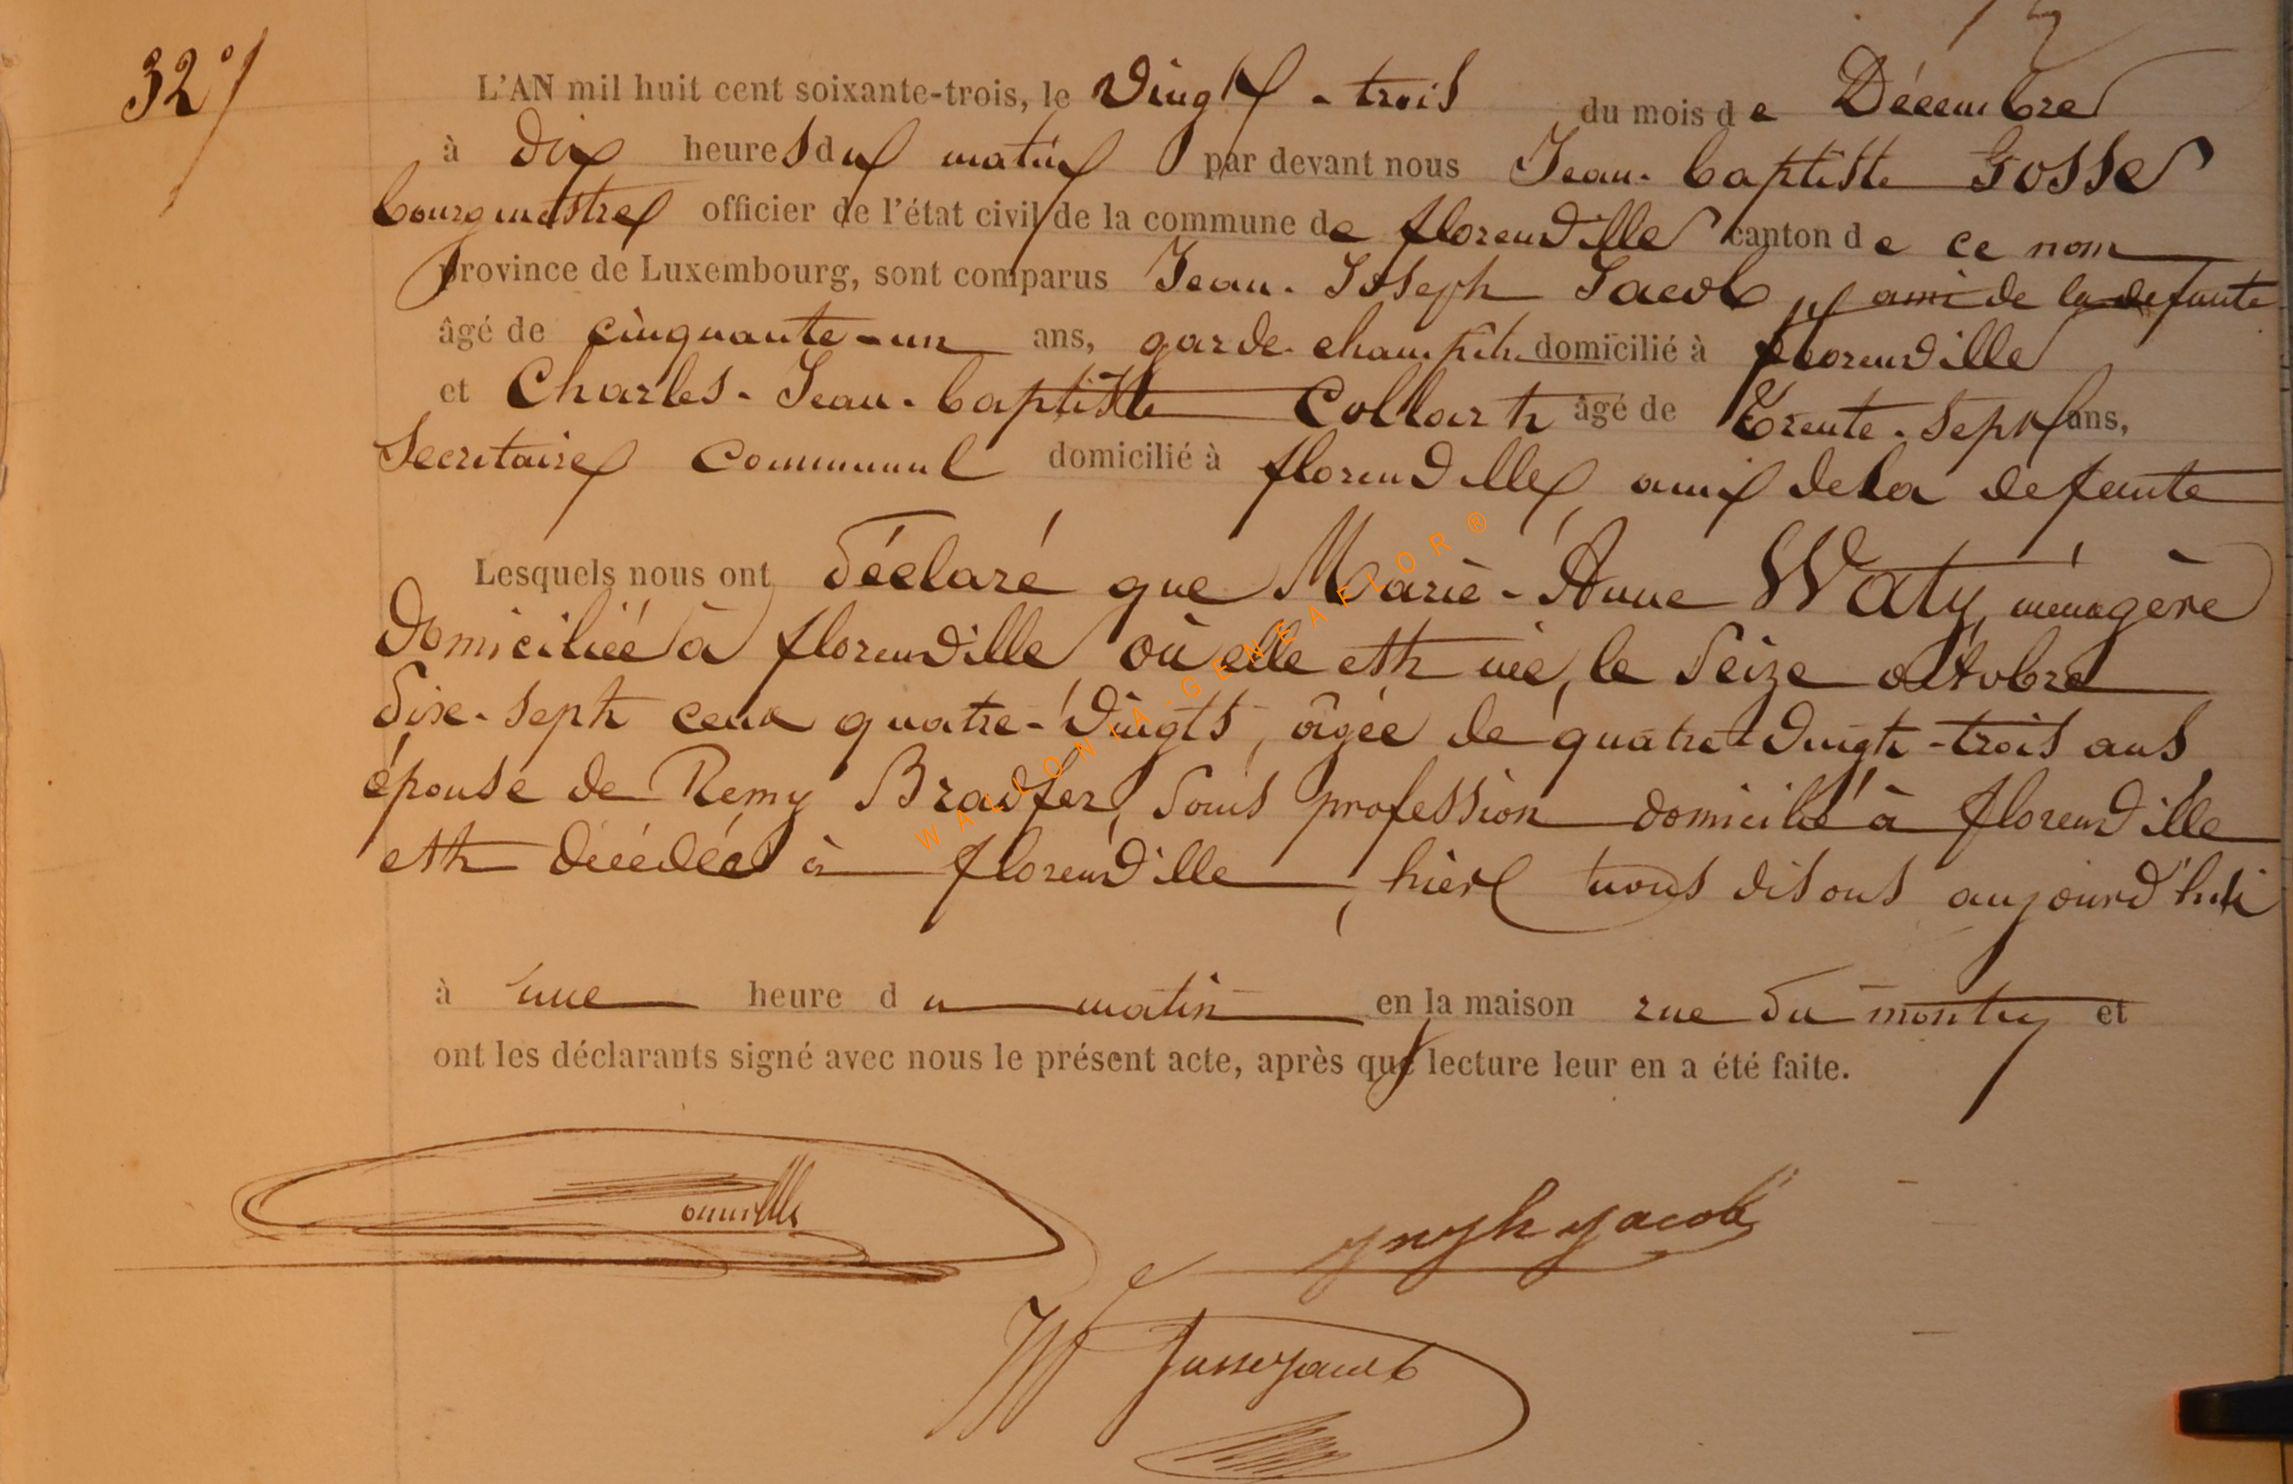 32°/
L'AN mil huit cent soixante-trois, le Vingt-trois du mois de Décembre
à Dix heures du matin par devant nous Jean-baptiste Gosse
bourgmestre officier de l'état civil de la commune de florenville canton de ce nom
province de Luxembourg, sont comparus Jean-Joseph Jacob, ami de la defunte
âgé de cinquante-un ans, garde-champêtre domicilié à florenville
et Charles-Jean-baptiste Collart âgé de Trente-sept ans,
Secretaire Communal domicilié à florenville, ami de la defunte
Lesquels nous ont déclaré que Marie-Anne Waty, ménagère
Domiciliée à florenville, où elle est née, le Seize octobre
dix-sept cent quatre-Vingts, âgée de quatre-Vingt-trois ans
épouse de Remy Bradfer, sans profession domicilié à florenville
est décédée à florenville, hier nous disons aujourd'hui
à une heure du matin en la maison rue du monty et
ont les déclarants signé avec nous le présent acte, après que lecture leur en a été faite.
Joseph Jacob
WALLONIA-GENEAFLOR®